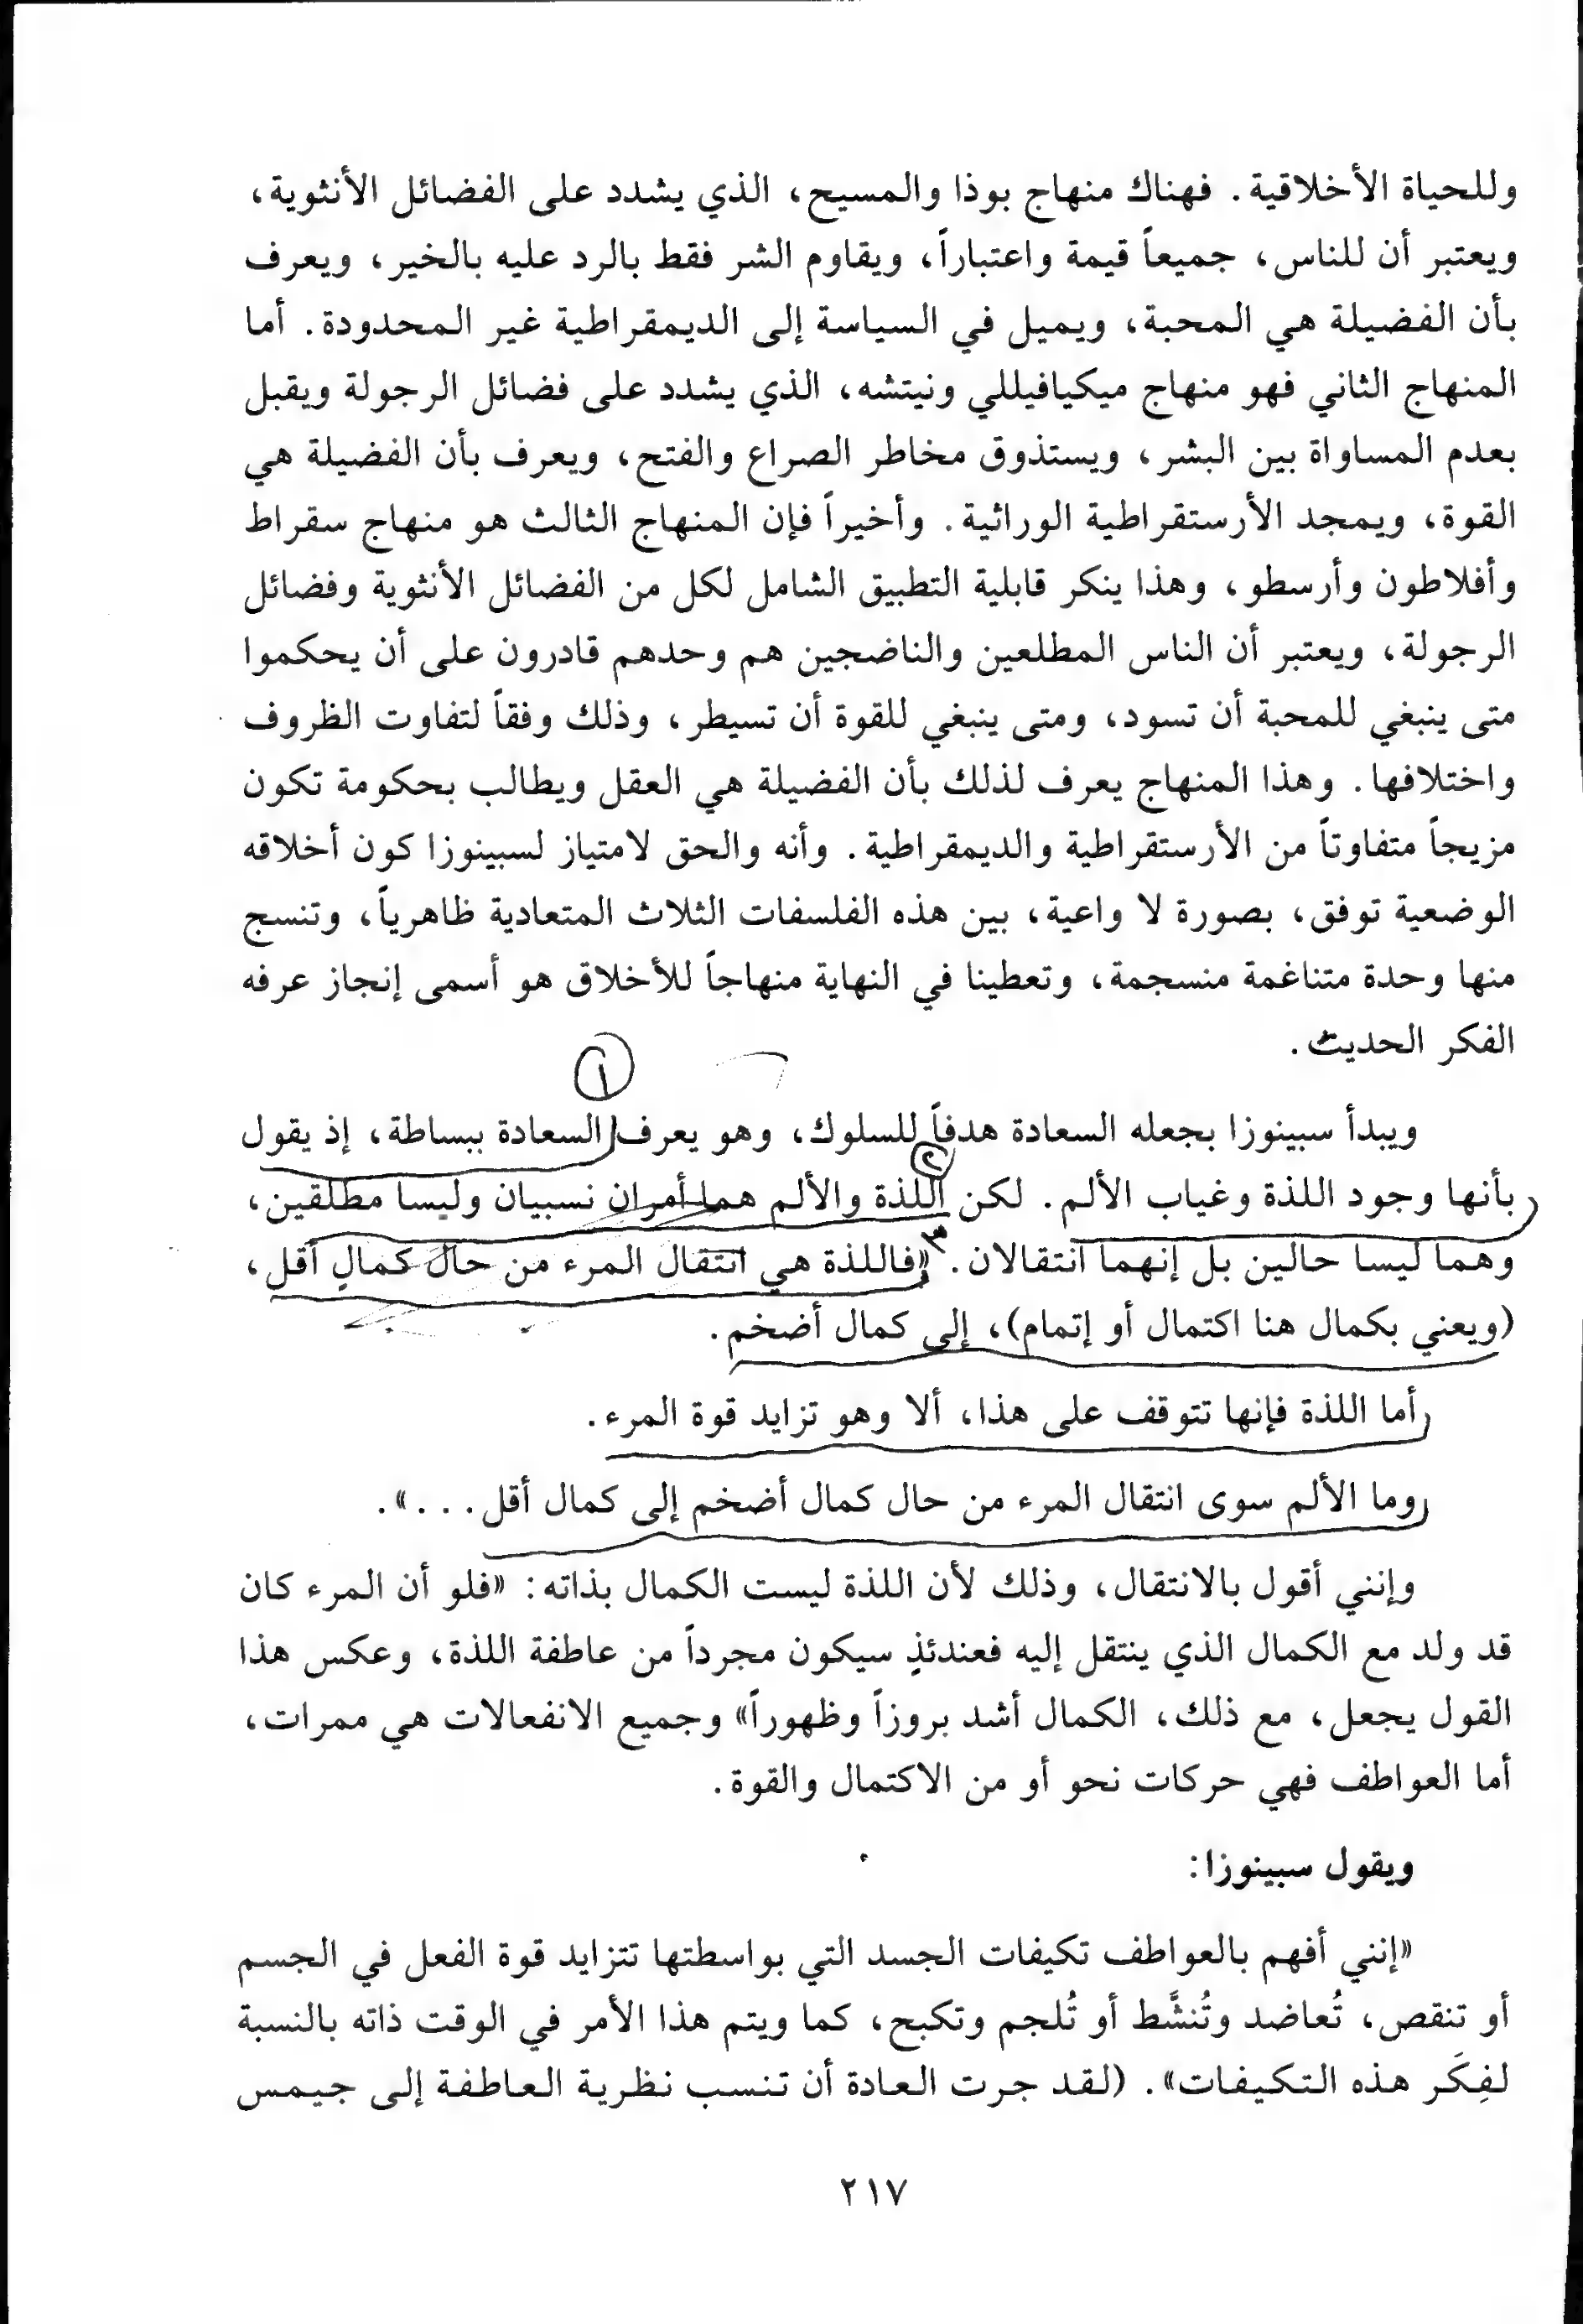 وللحياة الأخلاقية. فهناك منهاج بوذا والمسيح، الذي يشدد على الفضائل الأنثوية،
ويعتبر أن للناس، جميعاً قيمة واعتباراً، ويقاوم الشر فقط بالرد عليه بالخير، ويعرف
بأن الفضيلة هي المحبة، ويميل في السياسة إلى الديمقراطية غير المحدودة. أما
المنهاج الثاني فهو منهاج ميكيافيللي ونيتشه، الذي يشدد على فضائل الرجولة ويقبل
بعدم المساواة بين البشر، ويستذوق مخاطر الصراع والفتح، ويعرف بأن الفضيلة هي
القوة، ويمجد الأرستقراطية الوراثية. وأخيراً فإن المنهاج الثالث هو منهاج سقراط
وأفلاطون وأرسطو، وهذا ينكر قابلية التطبيق الشامل لكل من الفضائل الأنثوية وفضائل
الرجولة، ويعتبر أن الناس المطلعين والناضجين هم وحدهم قادرون على أن يحكموا
متى ينبغي للمحبة أن تسود، ومتى ينبغي للقوة أن تسيطر، وذلك وفقاً لتفاوت الظروف
واختلافها. وهذا المنهاج يعرف لذلك بأن الفضيلة هي العقل ويطالب بحكومة تكون
مزيجاً متفاوتاً من الأرستقراطية والديمقراطية. وأنه والحق لامتياز لسبينوزا كون أخلاقه
الوضعية توفق، بصورة لا واعية، بين هذه الفلسفات الثلاث المتعادية ظاهرياً، وتنسج
منها وحدة متناغمة منسجمة، وتعطينا في النهاية منهاجاً للأخلاق هو أسمى إنجاز عرفه
الفكر الحديث.
١
ويبدأ سبينوزا بجعله السعادة هدفاً للسلوك، وهو يعرف السعادة ببساطة، إذ يقول
٢
بأنها وجود اللذة وغياب الألم. لكن اللذة والألم هما أمران نسبيان وليسا مطلقين،
٣
وهما ليسا حالين بل إنهما انتقالان. «فاللذة هي انتقال المرء من حال كمالٍ أقل،
(ويعني بكمال هنا اكتمال أو إتمام)، إلى كمال أضخم.
أما اللذة فإنها تتوقف على هذا، ألا وهو تزايد قوة المرء.
وما الألم سوى انتقال المرء من حال كمال أضخم إلى كمال أقل...».
وإنني أقول بالانتقال، وذلك لأن اللذة ليست الكمال بذاته: «فلو أن المرء كان
قد ولد مع الكمال الذي ينتقل إليه فعندئذٍ سيكون مجرداً من عاطفة اللذة، وعكس هذا
القول يجعل، مع ذلك، الكمال أشد بروزاً وظهوراً» وجميع الانفعالات هي ممرات،
أما العواطف فهي حركات نحو أو من الاكتمال والقوة.
ويقول سبينوزا:
«إنني أفهم بالعواطف تكيفات الجسد التي بواسطتها تتزايد قوة الفعل في الجسم
أو تنقص، تُعاضد وتُنشَّط أو تُلجم وتكبح، كما ويتم هذا الأمر في الوقت ذاته بالنسبة
لفِكَر هذه التكيفات». (لقد جرت العادة أن تنسب نظرية العاطفة إلى جيمس
٢١٧